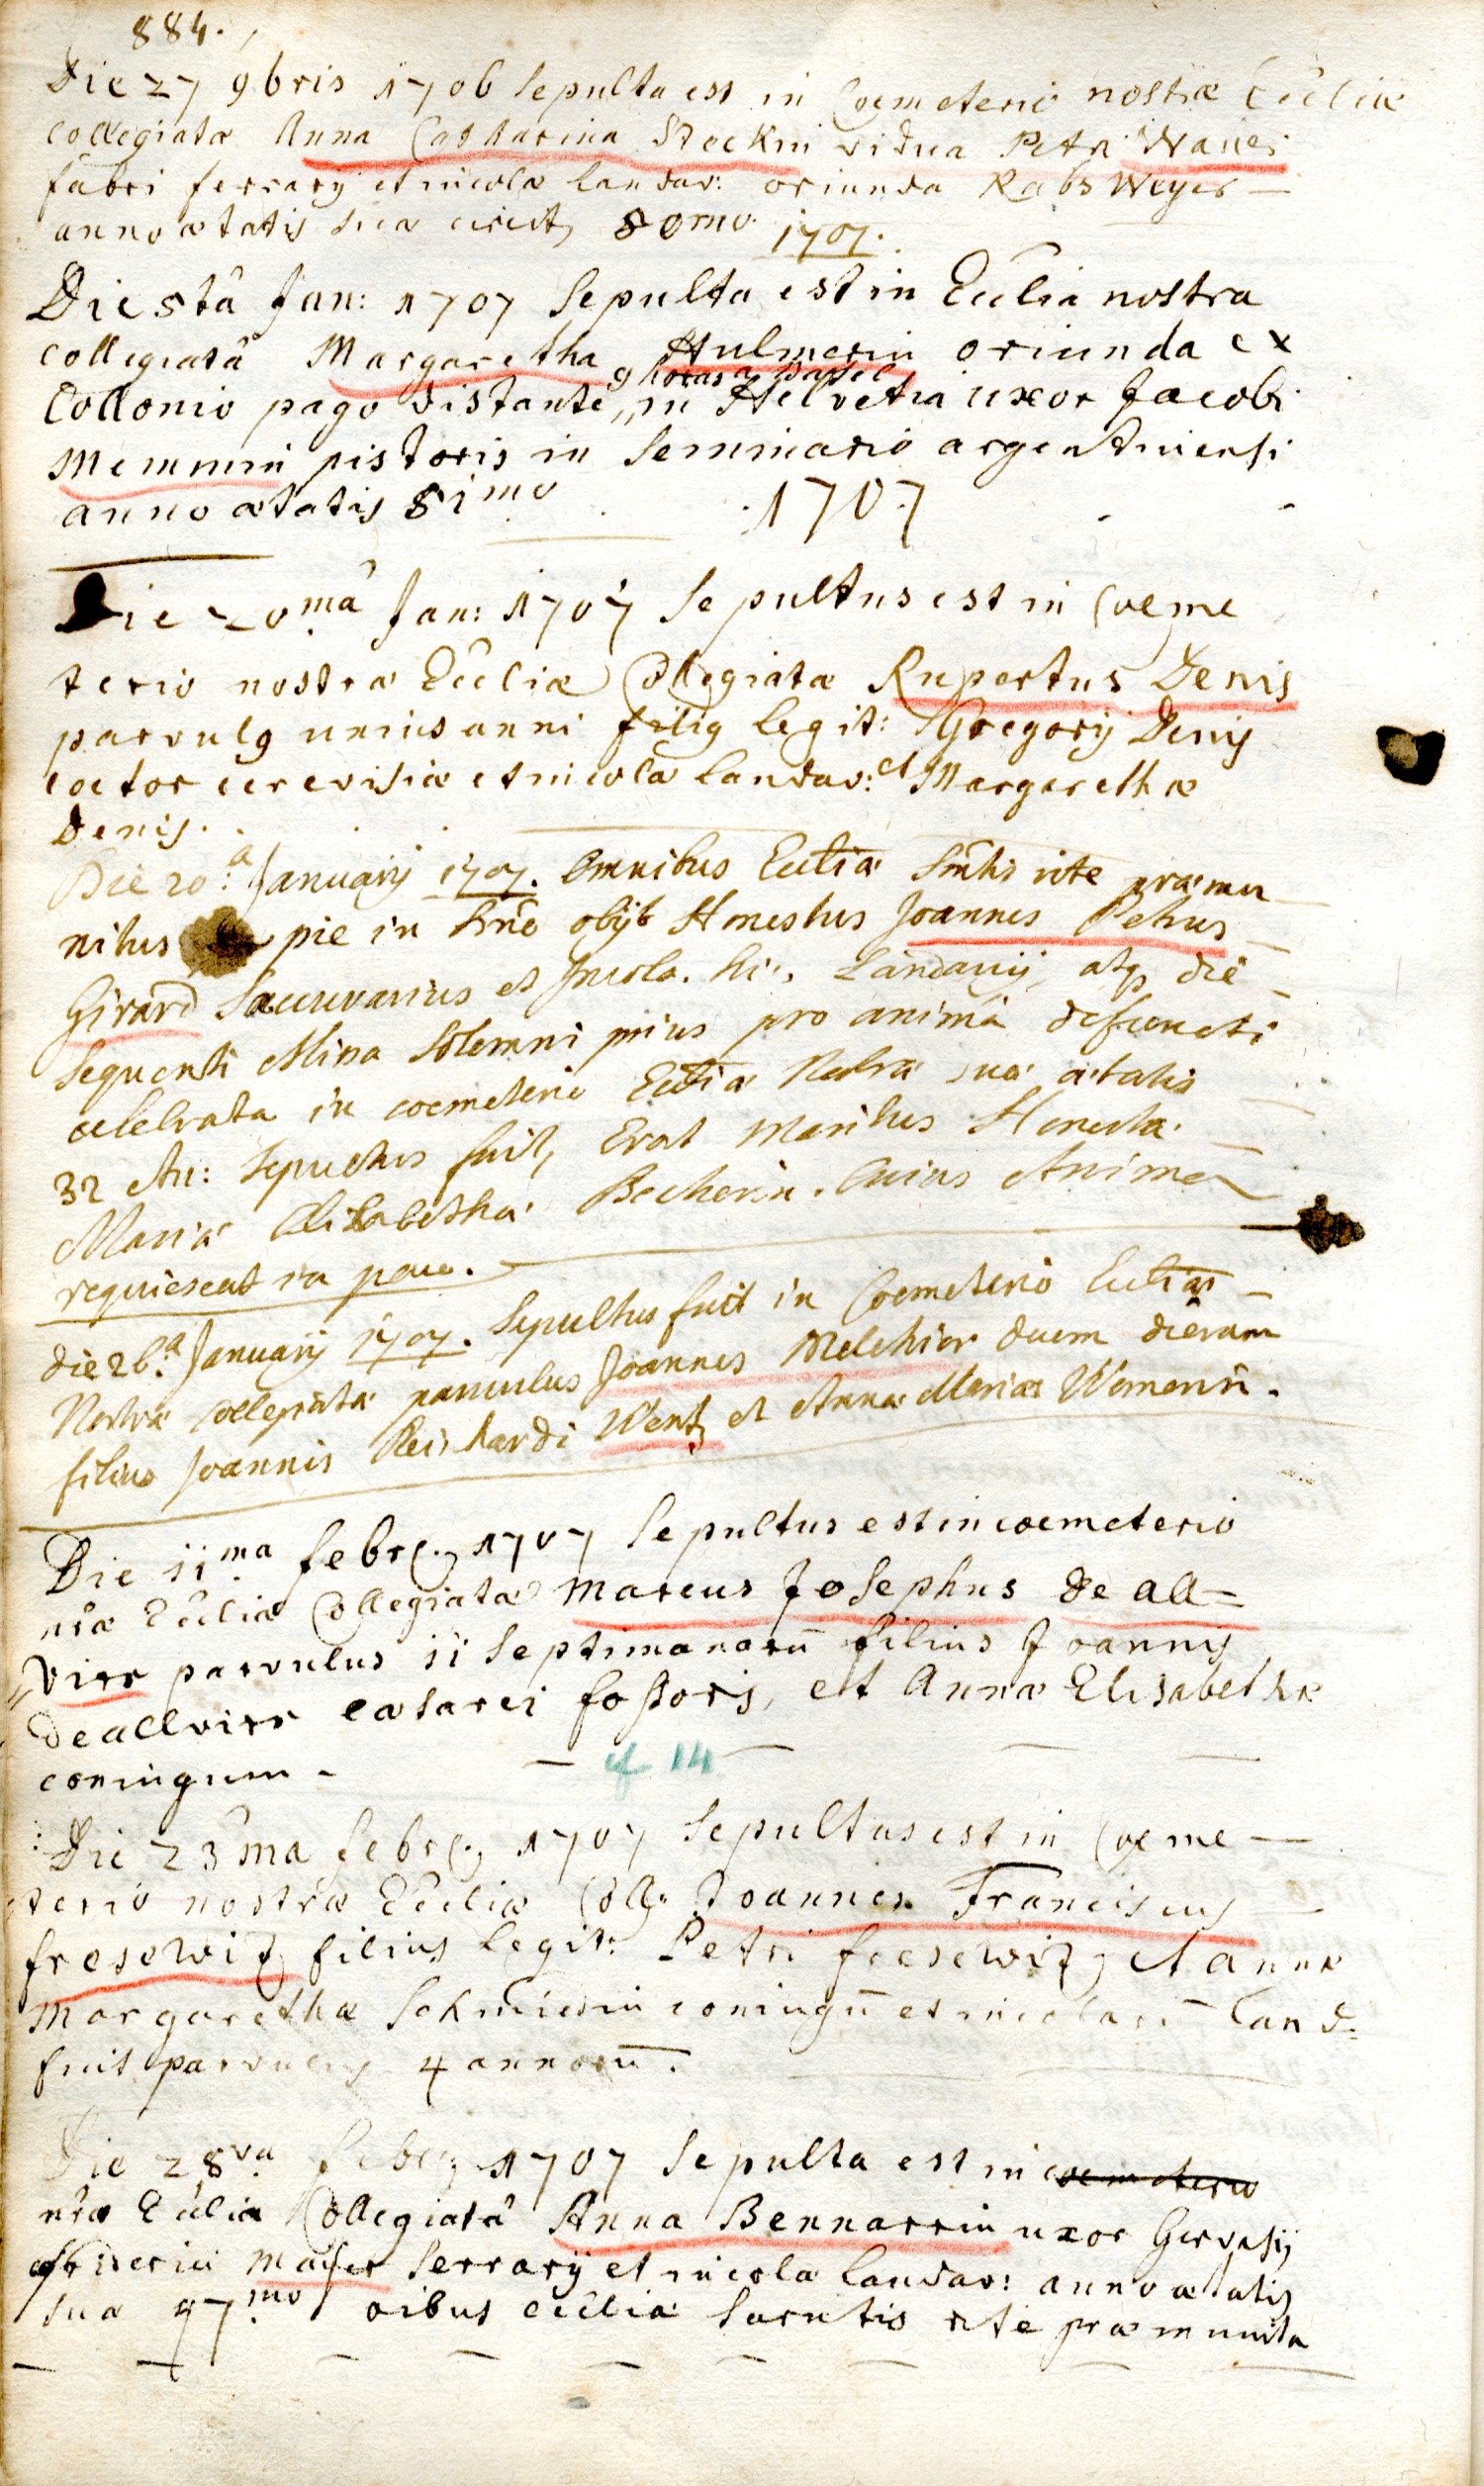 884.
Die 27 9bris 1706 Sepulta est in Coemeterio nostræ Eccliæ
Collegiatæ Anna Catharina Steckin vidua Petri Waner
fabri ferrarij et incolæ landav: oriunda Rabsweyer
anno ætatis suæ circit, 80mo.
1707.
Die 5tâ Jan: 1707 Sepulta est in Ecclia nostra
collegiatâ Margaretha Hulmerin oriunda ex
9 horas a Basel
Collonio pago distante,, in Helvetia uxor Jacobi
Memmin pistoris in Seminario argentinensi
anno ætatis 81mo
1707
Die 20mâ Jan: 1707 Sepultus est in Coeme
terio nostræ Eccliæ Collegiatæ Rupertus Denis
parvul9 unius anni fili9 legit: Gregorij Denis
coctor cerevisiæ et incola landav: et Margarethæ
Denis.
Die 20.a Januarij 1707. Omnibus Eccliæ Smtis rite præmu
nitus pie in Dno obijt Honestus Joannes Petrus
Girard et Incola. hic, Landavij, atq, die
Sequenti Missa Solemni prius pro animâ defuncti
celebrata in coemeterio Eccliæ Nostræ suæ ætatis
32 An: Sepultus fuit, Erat Maritus Honestæ
Mariæ Elisabethæ Beckerin. Cuius Anima
requiescat in pace.
die 26.a Januarij 1707. Sepultus fuit in Coemeterio Eccliæ
Nostræ collegiatæ parvulus Joannes Melchior duem dierum
filius Joannis Reichardi Wentz et Annæ Mariæ Womerin.
Die 11ma febr. 1707 Sepultus est in coemeterio
nræ Eccliæ Collegiatæ Marcus Josephus de all=
„virr parvulus 11 Septimanarū filius Joannis
deallvirr cæsarei foßoris, et Annæ Elisabethæ
coniugum -
cf 14
Die 23ma febr. 1707 Sepultus est in Coeme
terio nostræ Eccliæ Coll: Joannes Franciscus
fresewitz filius legit: Petri freesewitz et annæ
Margarethæ Schmidin coniugū et incolarū land:
fuit parvulus 4 annorū.
Die 28va febr. 1707 Sepulta est in coemeterio
nrâ Eccliâ Collegiatâ Anna Bennarrin uxor Gervasij
Mayer Serrarij et incolæ landav: anno ætatis
suæ 97mo oibus eccliæ Sacrntis rite præmunita